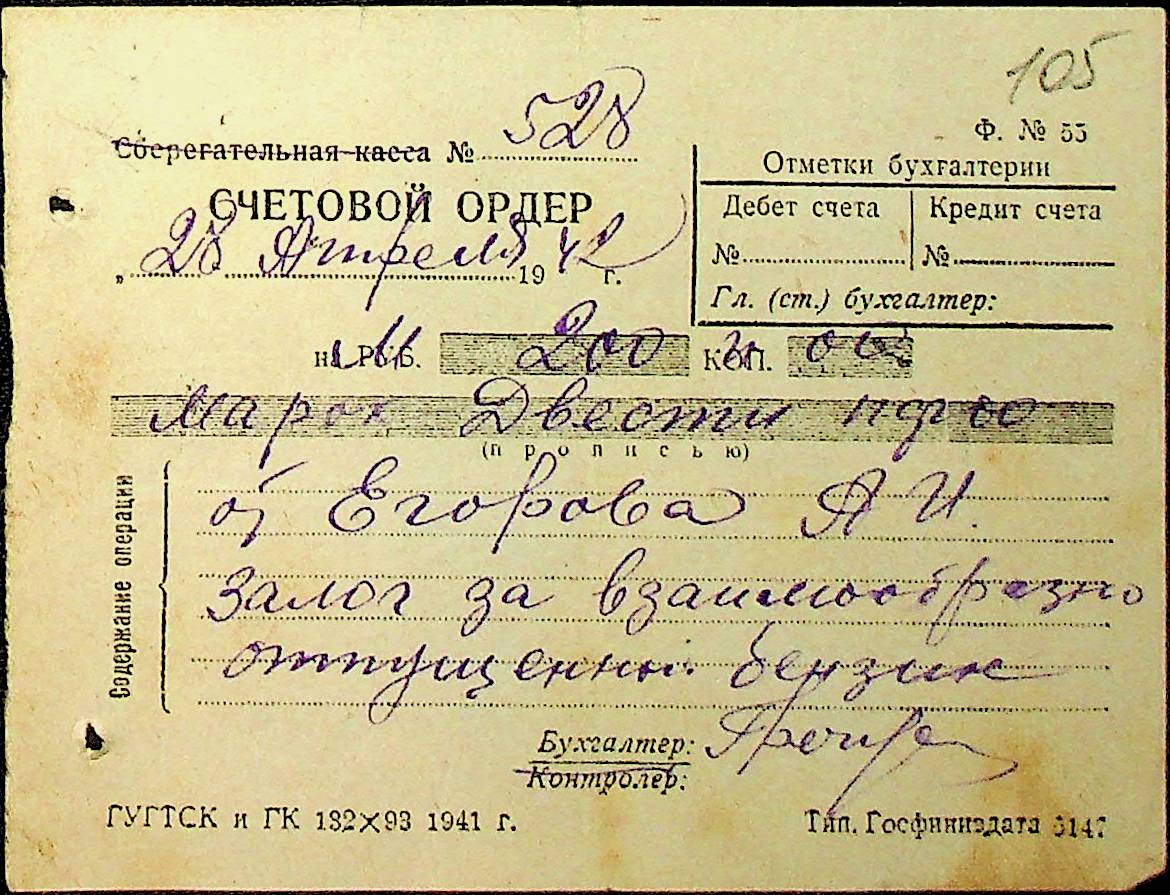 105
Ф. № 55
Сберегательная касса № 528
СЧЕТОВОЙ ОРДЕР
„ 28 Апреля 19 42 г.
Отметки бухгалтерии
Дебет счета Кредит счета
№ №
Гл. (ст.) бухгалтер:
на РУБ. 200 КОП. 00
Марок Двести пф 00
(прописью)
Содержание операции
от Егорова А И.
Залог за взаимообразно
отпущенный бензин
Бухгалтер:
Контролер:
ГУГТСК и ГК 132×93 1941 г.
Тип. Госфиниздата 6147